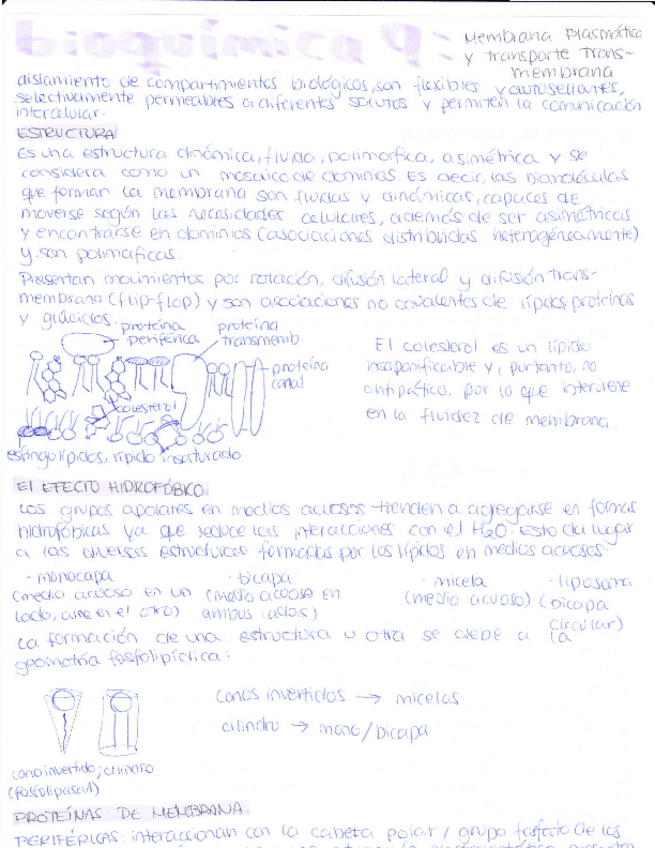 bioquímica 9:
Membrana Plasmática
y transporte Trans-
membrana
aislamiento de compartimientos biológicos, son flexibles y autosellantes,
selectivamente permeables a diferentes solutos y permiten la comunicación
intercelular.
ESTRUCTURA
Es una estructura dinámica, fluida, polimorfica, asimétrica y se
considera como un mosaico de dominios. Es decir, las biomoléculas
que forman la membrana son fluidas y dinámicas, capaces de
moverse según las necesidades celulares, además de ser asimétricas
y encontrarse en dominios (asociaciones distribuidas heterogéneamente)
y son polimorficas.
Presentan movimientos por rotación, difusión lateral y difusión trans-
membrana (flip-flop) y son asociaciones no covalentes de lípidos, proteínas
y glúcidos.
proteína
periférica
proteína
transmemb.
proteína
canal
colesterol
esfingolípidos, lípido insaturado
El colesterol es un lípido
insaponificable y, por tanto, no
antipático, por lo que interviene
en la fluidez de membrana.
El EFECTO HIDROFÓBICO.
Los grupos apolares en medios acuosos tienden a agregarse en formas
hidrofóbicas ya que reduce las interacciones con el H2O. Esto da lugar
a las diversas estructuras formadas por los lípidos en medios acuosos:
· monocapa
(medio acuoso en un
lado, aire en el otro)
· bicapa
(medio acuoso en
ambos lados)
· micela
(medio acuoso)
· liposoma
(bicapa
circular)
La formación de una estructura u otra se debe a la
geometría fosfolipídica:
conos invertidos → micelas
cilindro → mono/bicapa
cono invertido; cilindro
PROTEÍNAS DE MEMBRANA.
PERIFÉRICAS: interaccionan con la cabeza polar / grupo fosfato de los